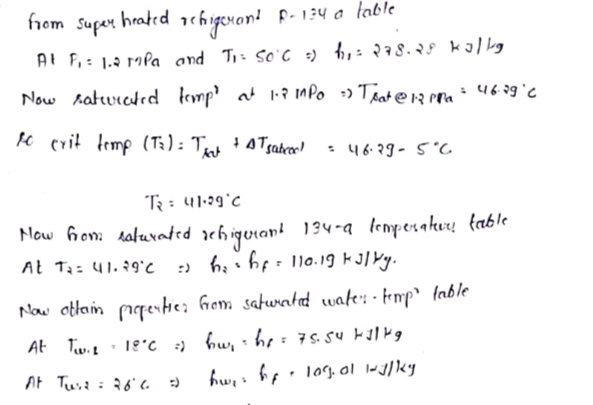 from super heated refrigerant R-134a table
At P₁ = 1.2 mPa and T₁ = 50°C => h₁ = 278.28 kJ/kg
Now saturated tempᵗ at 1.2 mPa => Tsat@1.2 mpa = 46.29°C
So exit temp (T₂) = Tsat + ΔTsubcool = 46.29 - 5°C
T₂ = 41.29°C
Now from saturated refrigerant 134-a temperature table
At T₂ = 41.29°C => h₂ = hf = 110.19 kJ/kg.
Now obtain properties from saturated water-tempⁿ table
At Tw.1 = 18°C => hw₁ = hf = 75.54 kJ/kg
At Tw.2 = 26°C => hw₂ = hf = 109.01 kJ/kg